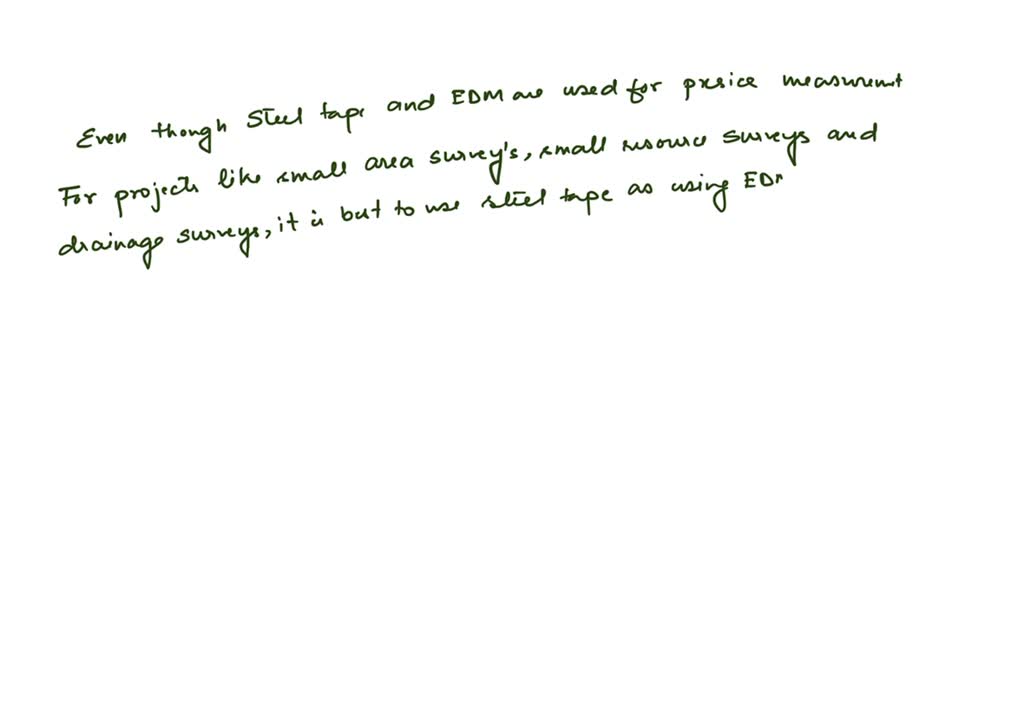 Even though Steel tape and EDM are used for presice measurement
For projects like small area survey's, small resource surveys and
drainage surveys, it is best to use steel tape as using EDM